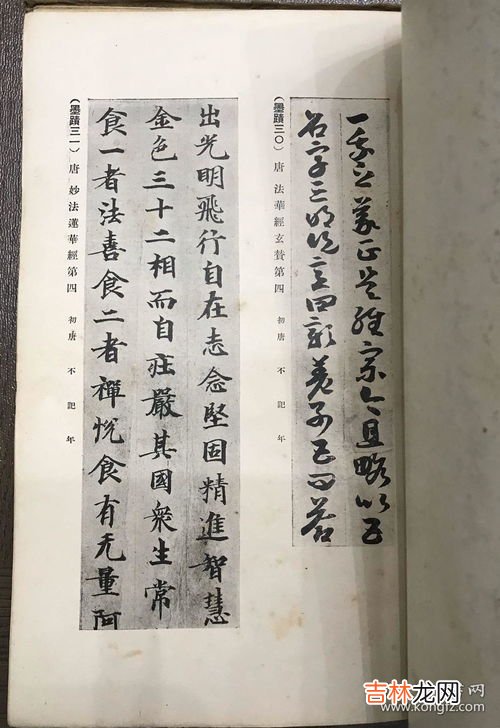 義正是經宗今且略以五
名字三
（墨蹟三〇）唐 法華經玄贊第四 初唐 不記年
出光明飛行自在志念堅固精進智慧
金色三十二相而自莊嚴其國衆生常
食一者法喜食二者禪悅食有无量阿
（墨蹟三一）唐 妙法蓮華經第四 初唐 不記年
吉林龙网
www.kongfz.com